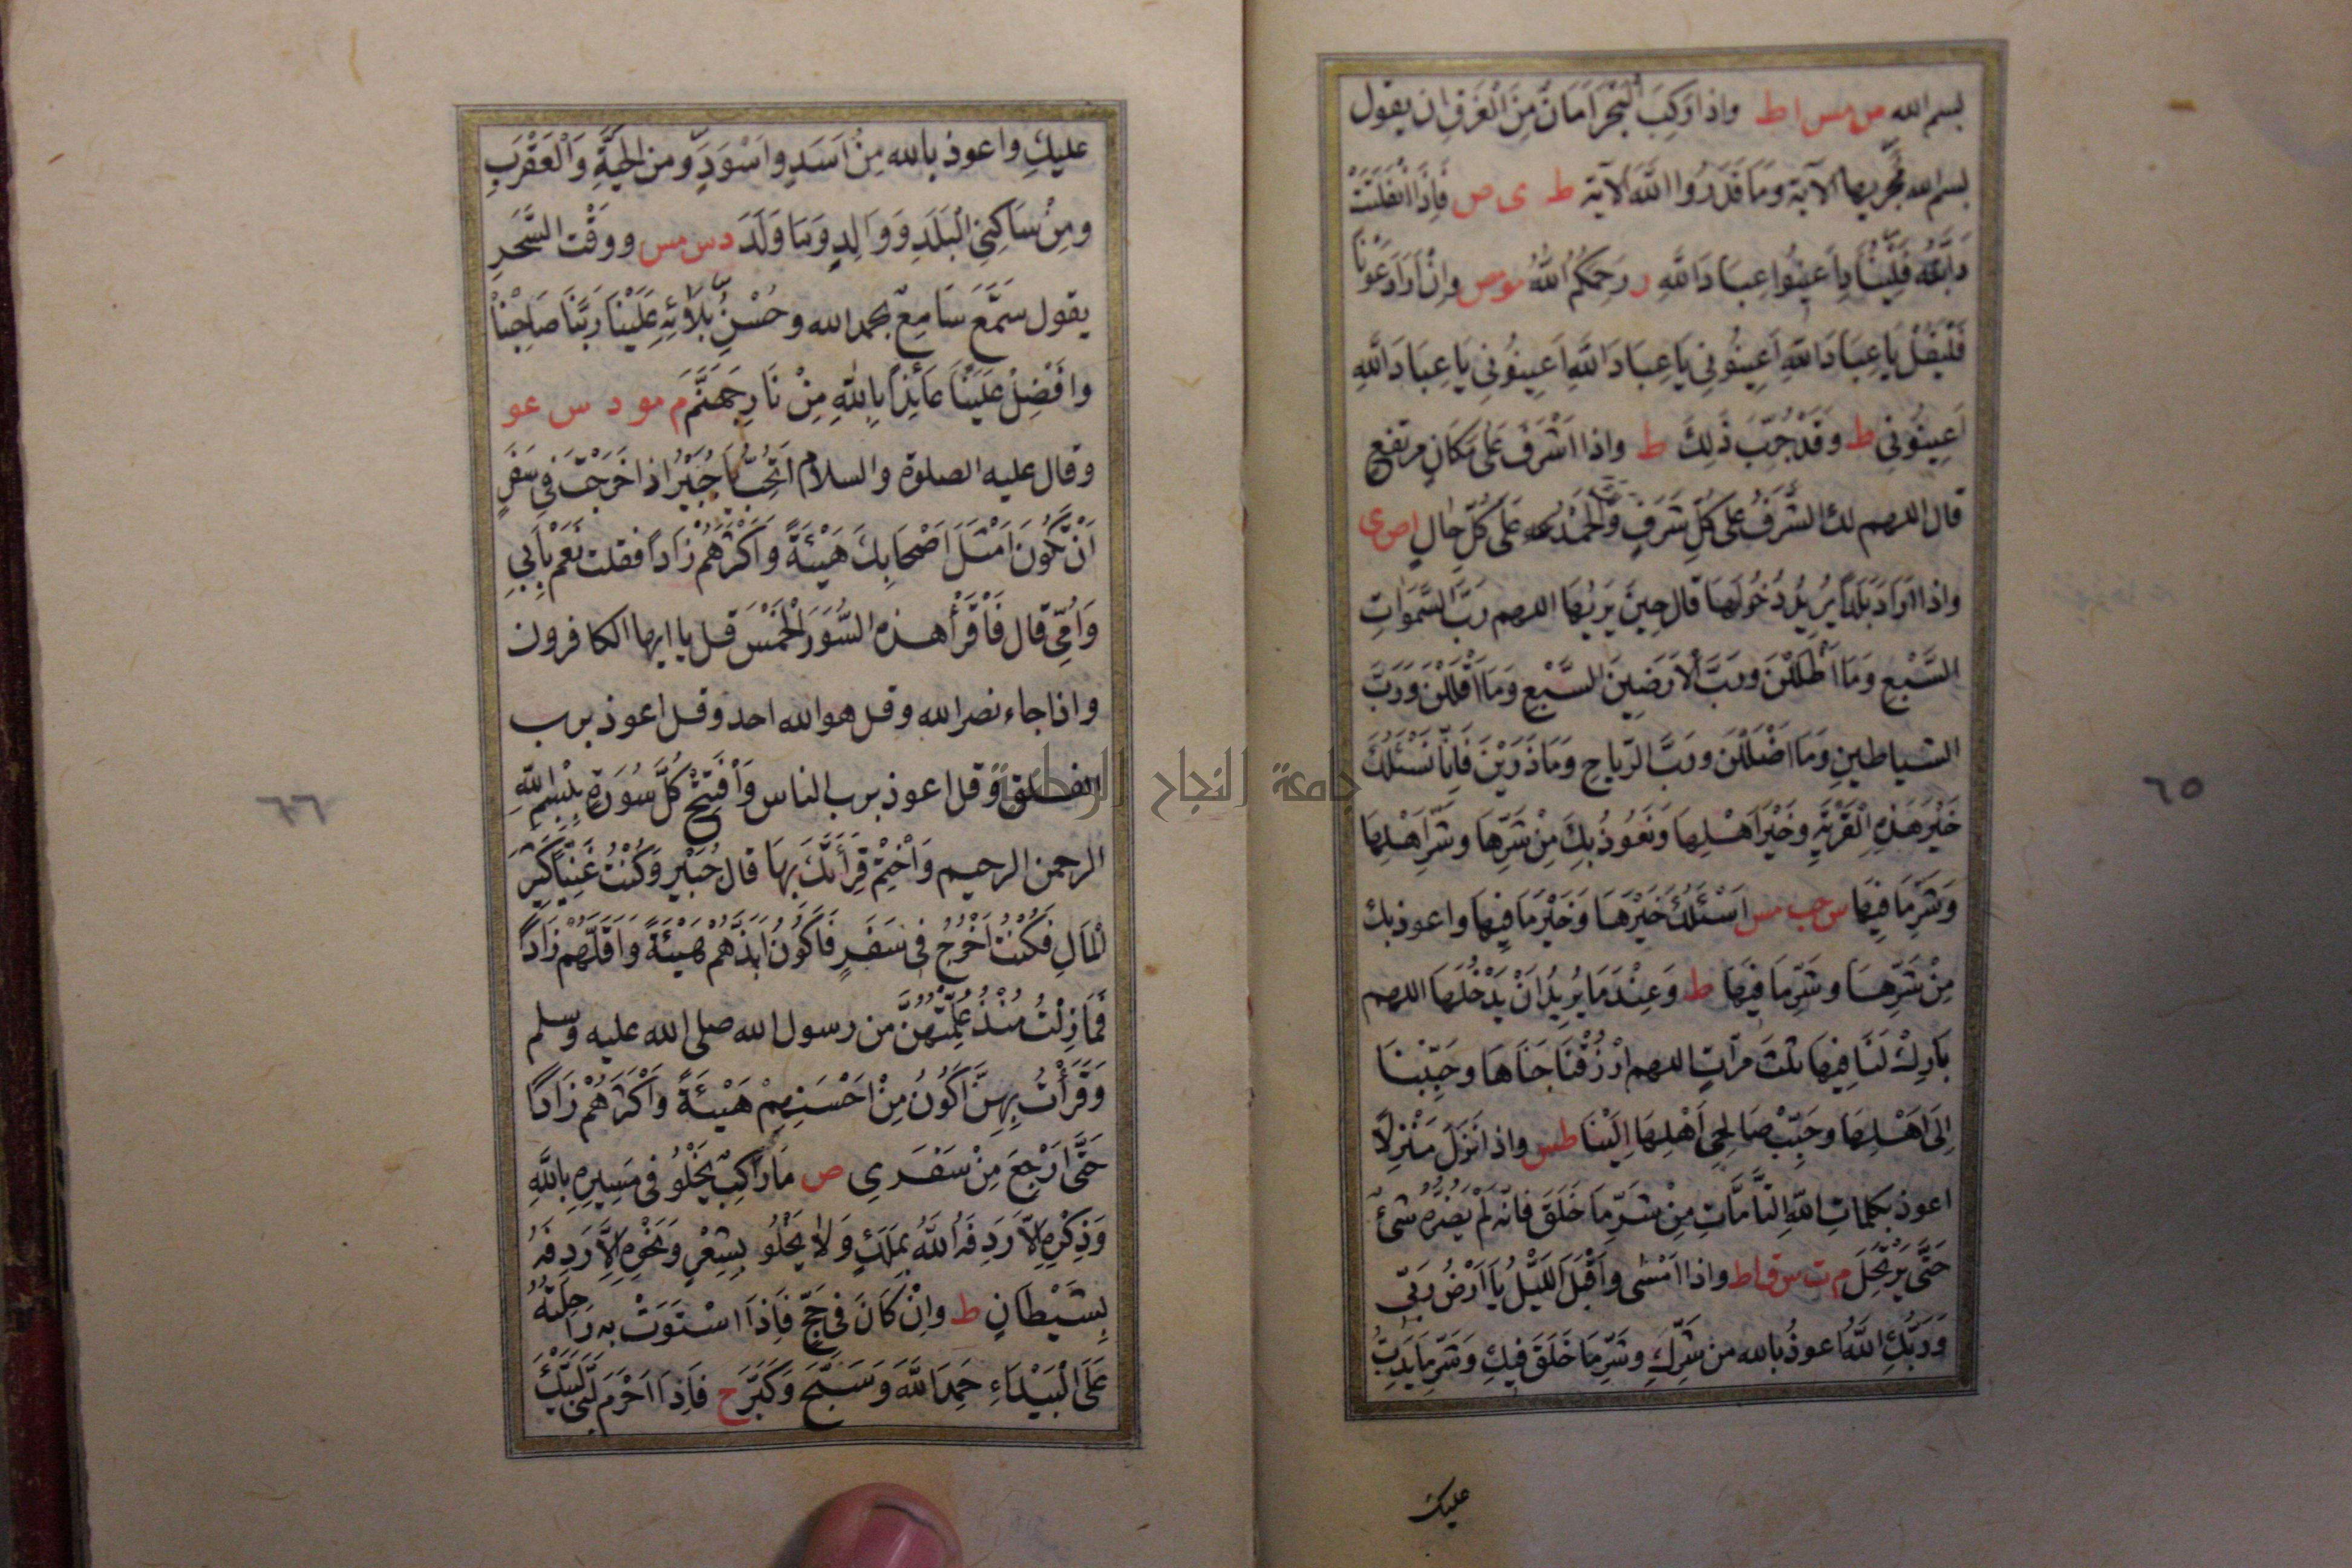 بسم الله س مس ا ط واذا ركب البحر امان من الغرق ان يقول
بسم الله مجريها الآية وما قدروا الله الآية ط ى ص فاذا انفلتت
دابته فلينادا اعينوا عباد الله ر رحمكم الله مو مص وان اراد عونا
فليقل يا عباد الله اعينوني يا عباد الله اعينوني يا عباد الله
اعينوني ط وقد جرب ذلك ط واذا اشرف على مكان مرتفع
قال اللهم لك الشرف على كل شرف ولك الحمد على كل حال ا ص ى
واذا اراد بلدا يريد دخولها قال حين يريها اللهم رب السموات
السبع وما اظللن ورب الارضين السبع وما اقللن ورب
الشياطين وما اضللن ورب الرياح وما ذرين فانا نسئلك
خير هذه القرية وخير اهلها ونعوذ بك من شرها وشر اهلها
وشر ما فيها س حب مس اسئلك خيرها وخير ما فيها واعوذ بك
من شرها وشر ما فيها ط وعند ما يريد ان يدخلها اللهم
بارك لنا فيها ثلث مرات اللهم ارزقنا جناها وحببنا
الى اهلها وحبب صالحي اهلها الينا طس واذا نزل منزلا
اعوذ بكلمات الله التامات من شر ما خلق فانه لم يضره شئ
حتى يرتحل م ت س ق ا ط واذا امسى واقبل الليل يا ارض ربي
وربك الله اعوذ بالله من شرك وشر ما خلق فيك وشر ما يدب
عليك
٦٥
عليك واعوذ بالله من اسد واسود ومن الحية والعقرب
ومن ساكني البلد ووالد وما ولد د س مس ووقت السحر
يقول سمع سامع بحمد الله وحسن بلائه علينا ربنا صاحبنا
وافضل علينا عائذا بالله من نار جهنم م مو د س عو
وقال عليه الصلوة والسلام اتحب يا جبير اذا خرجت في سفر
ان تكون امثل اصحابك هيئة واكثرهم زادا فقلت نعم بابي
وامي قال فاقرأ هذه السور الخمس قل يا ايها الكافرون
واذا جاء نصر الله وقل هو الله احد وقل اعوذ برب
الفلق وقل اعوذ برب الناس وافتح كل سورة ببسم الله
الرحمن الرحيم واختم قرأتك بها قال جبير وكنت غنيا كثير
المال فكنت اخرج في سفر فاكون ابذهم هيئة واقلهم زادا
فما زلت منذ علمتهن من رسول الله صلى الله عليه وسلم
وقرأت بهن اكون من احسنهم هيئة واكثرهم زادا
حتى ارجع من سفري ص ما راكب يخلو في مسيره بالله
وذكره الا ردفه الله بملك ولا يخلو بشعر ونحوه الا ردفه
بشيطان ط وان كان في حج فاذا استوت به راحلته
على البيداء حمد الله وسبح وكبر خ فاذا احرم لبى لبيك
٦٦
جامعة النجاح الوطنية